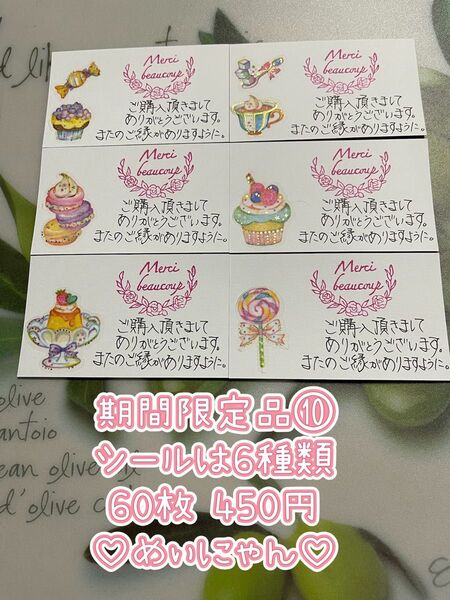 Merci
beaucoup
ご購入頂きまして
ありがとうございます。
またのご縁がありますように。
Merci
beaucoup
ご購入頂きまして
ありがとうございます。
またのご縁がありますように。
Merci
beaucoup
ご購入頂きまして
ありがとうございます。
またのご縁がありますように。
Merci
beaucoup
ご購入頂きまして
ありがとうございます。
またのご縁がありますように。
Merci
beaucoup
ご購入頂きまして
ありがとうございます。
またのご縁がありますように。
Merci
beaucoup
ご購入頂きまして
ありがとうございます。
またのご縁がありますように。
olive
antoio
ean olive
d'olive
期間限定品⑩
シールは6種類
60枚 450円
♡めいにゃん♡